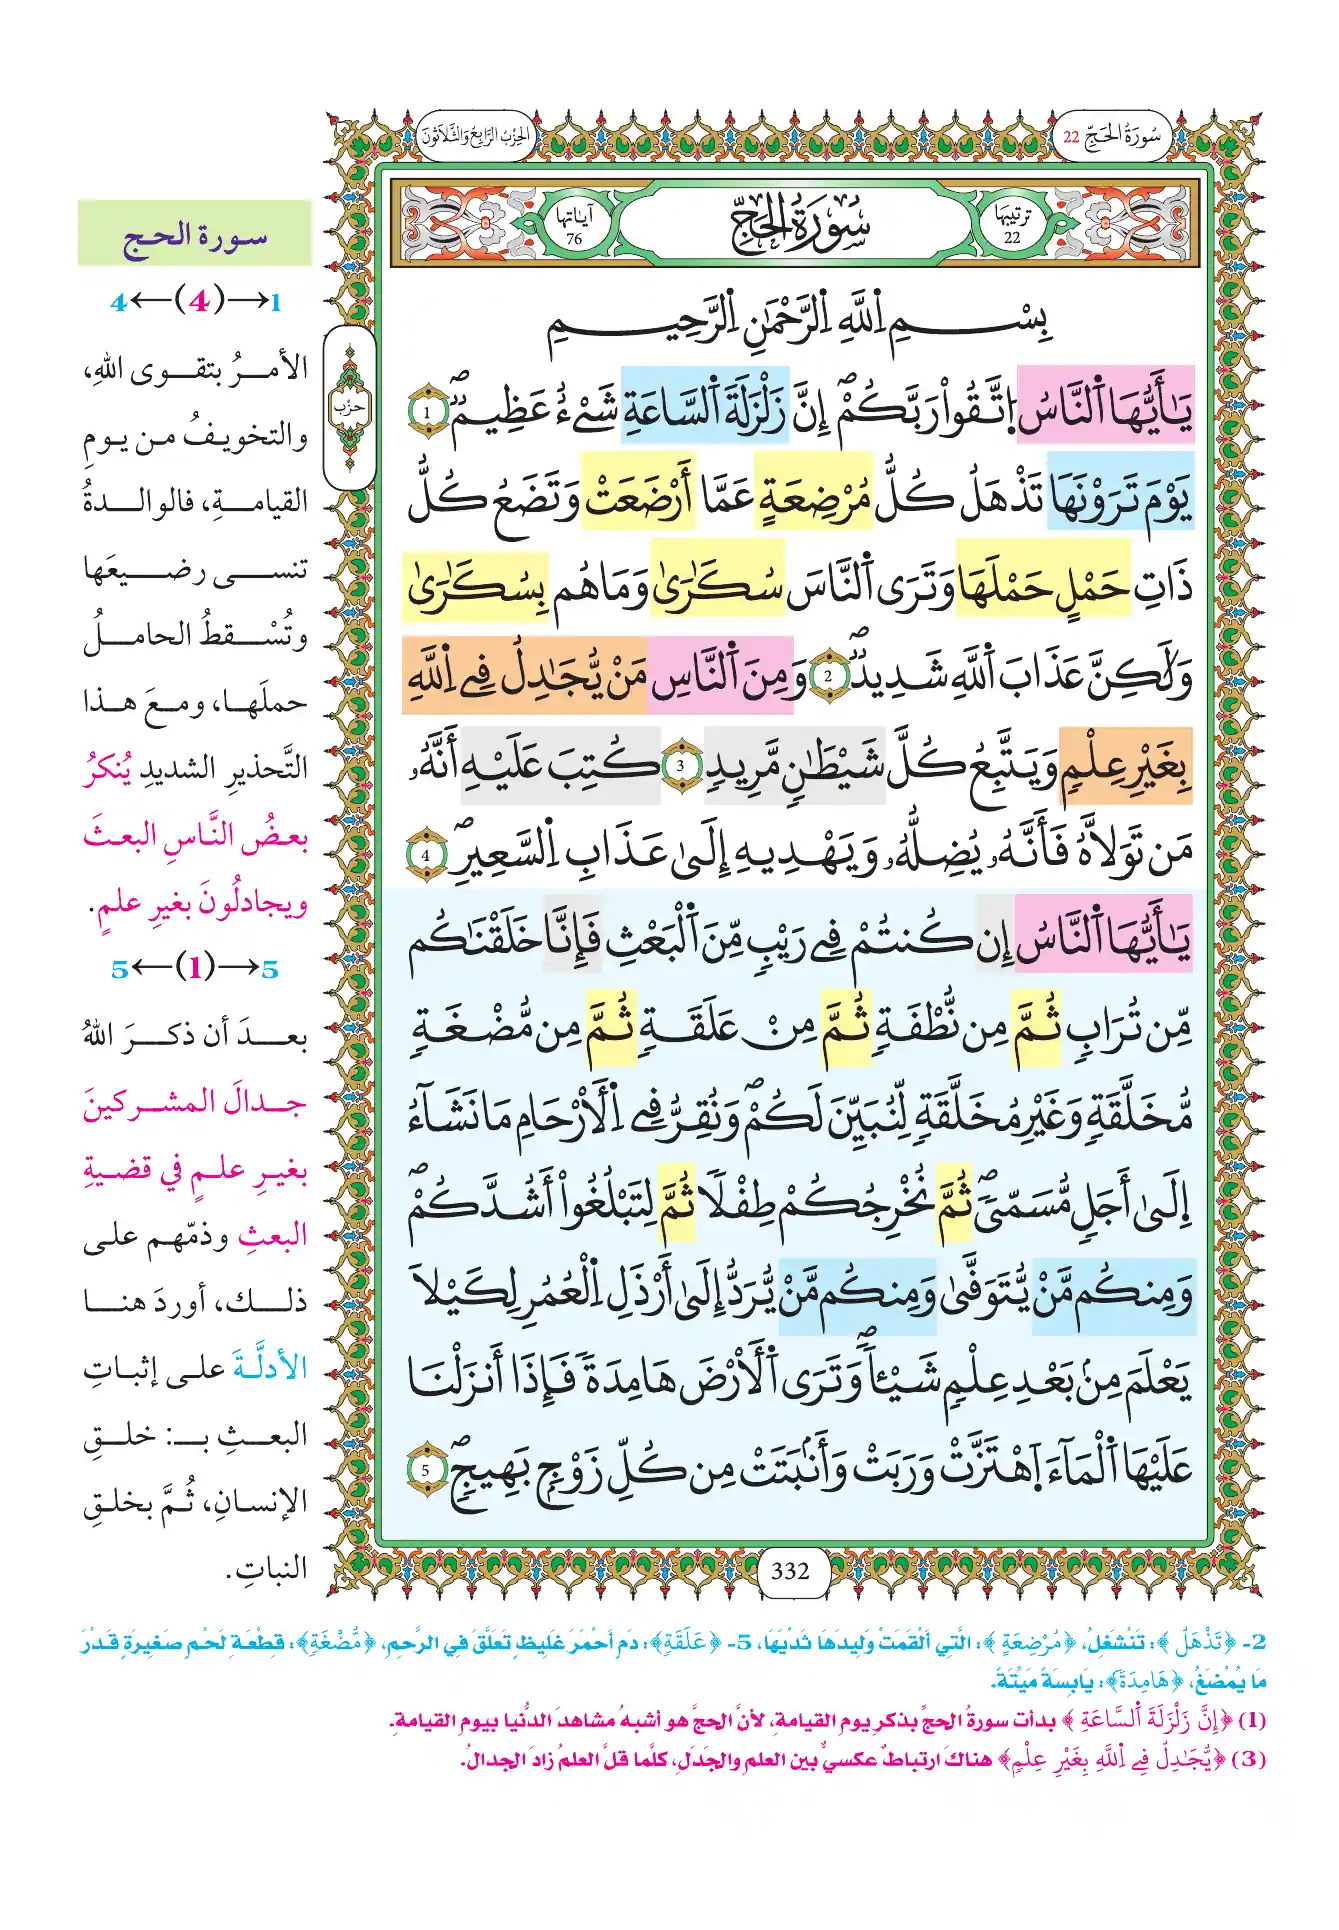 سُورَةُ الحَجِّ 22
الحِزْبُ الرَّابِعُ وَالثَّلَاثُونَ
ترتيبها
22
سُورَةُ الحَجِّ
آياتها
76
بِسْمِ اِ۬للَّهِ اِ۬لرَّحْمَٰنِ اِ۬لرَّحِيمِ
يَٰأَيُّهَا اَ۬لنَّاسُ اُ۪تَّقُواْ رَبَّكُمْۖ إِنَّ زَلْزَلَةَ اَ۬لسَّاعَةِ شَےْءٌ عَظِيمٞۖ 1
يَوْمَ تَرَوْنَهَا تَذْهَلُ كُلُّ مُرْضِعَةٍ عَمَّا أَرْضَعَتْ وَتَضَعُ كُلُّ
ذَاتِ حَمْلٍ حَمْلَهَا وَتَرَى اَ۬لنَّاسَ سُكَٰرَىٰ وَمَا هُم بِسُكَٰرَىٰ
وَلَٰكِنَّ عَذَابَ اَ۬للَّهِ شَدِيدٞۖ 2 وَمِنَ اَ۬لنَّاسِ مَنْ يُّجَٰدِلُ فِے اِ۬للَّهِ
بِغَيْرِ عِلْمٖ وَيَتَّبِعُ كُلَّ شَيْطَٰنٖ مَّرِيدٖ 3 كُتِبَ عَلَيْهِ أَنَّهُۥ
مَن تَوَلَّاهُ فَأَنَّهُۥ يُضِلُّهُۥ وَيَهْدِيهِ إِلَىٰ عَذَابِ اِ۬لسَّعِيرِۖ 4
يَٰأَيُّهَا اَ۬لنَّاسُ إِن كُنتُمْ فِے رَيْبٖ مِّنَ اَ۬لْبَعْثِ فَإِنَّا خَلَقْنَٰكُم
مِّن تُرَابٖ ثُمَّ مِن نُّطْفَةٖ ثُمَّ مِنْ عَلَقَةٖ ثُمَّ مِن مُّضْغَةٖ
مُّخَلَّقَةٖ وَغَيْرِ مُخَلَّقَةٖ لِّنُبَيِّنَ لَكُمْۖ وَنُقِرُّ فِے اِ۬لْأَرْحَامِ مَا نَشَآءُ
إِلَىٰ أَجَلٖ مُّسَمّىٗۖ ثُمَّ نُخْرِجُكُمْ طِفْلاٗ ثُمَّ لِتَبْلُغُواْ أَشُدَّكُمْۖ
وَمِنكُم مَّنْ يُّتَوَفَّىٰ وَمِنكُم مَّنْ يُّرَدُّ إِلَىٰ أَرْذَلِ اِ۬لْعُمُرِ لِكَيْلَا
يَعْلَمَ مِنۢ بَعْدِ عِلْمٖ شَيْـٔاٗۖ وَتَرَى اَ۬لْأَرْضَ هَامِدَةٗ فَإِذَا أَنزَلْنَا
عَلَيْهَا اَ۬لْمَآءَ اَ۪هْتَزَّتْ وَرَبَتْ وَأَنۢبَتَتْ مِن كُلِّ زَوْجِۢ بَهِيجٖۖ 5
332
حزب
سورة الحج
1→(4)←4
الأمرُ بتقوى اللهِ،
والتخويفُ من يومِ
القيامةِ، فالوالدةُ
تنسى رضيعَها
وتُسْقطُ الحاملُ
حملَها، ومعَ هذا
التَّحذيرِ الشديدِ يُنكرُ
بعضُ النَّاسِ البعثَ
ويجادلُونَ بغيرِ علمٍ.
5→(1)←5
بعدَ أن ذكرَ اللهُ
جدالَ المشركينَ
بغيرِ علمٍ في قضيةِ
البعثِ وذمّهم على
ذلك، أوردَ هنا
الأدلَّةَ على إثباتِ
البعثِ بـ: خلقِ
الإنسانِ، ثُمَّ بخلقِ
النباتِ.
2- ﴿تَذْهَلُ﴾: تَنْشَغِلُ، ﴿مُرْضِعَةٍ﴾: الَّتِي أَلْقَمَتْ وَلِيدَهَا ثَدْيَهَا، 5- ﴿عَلَقَةٖ﴾: دَمٍ أَحْمَرَ غَلِيظٍ تَعَلَّقَ فِي الرَّحِمِ، ﴿مُّضْغَةٖ﴾: قِطْعَةِ لَحْمٍ صَغِيرَةٍ قَدْرَ
مَا يُمْضَغُ، ﴿هَامِدَةٗ﴾: يَابِسَةً مَيِّتَةً.
(1) ﴿إِنَّ زَلْزَلَةَ اَ۬لسَّاعَةِ﴾ بدأت سورةُ الحجِّ بذكرِ يومِ القيامةِ، لأنَّ الحجَّ هو أشبهُ مشاهدَ الدُّنيا بيومِ القيامةِ.
(3) ﴿يُّجَٰدِلُ فِے اِ۬للَّهِ بِغَيْرِ عِلْمٖ﴾ هناكَ ارتباطٌ عكسيٌّ بين العلمِ والجَدَلِ، كلَّما قلَّ العلمُ زادَ الجدالُ.